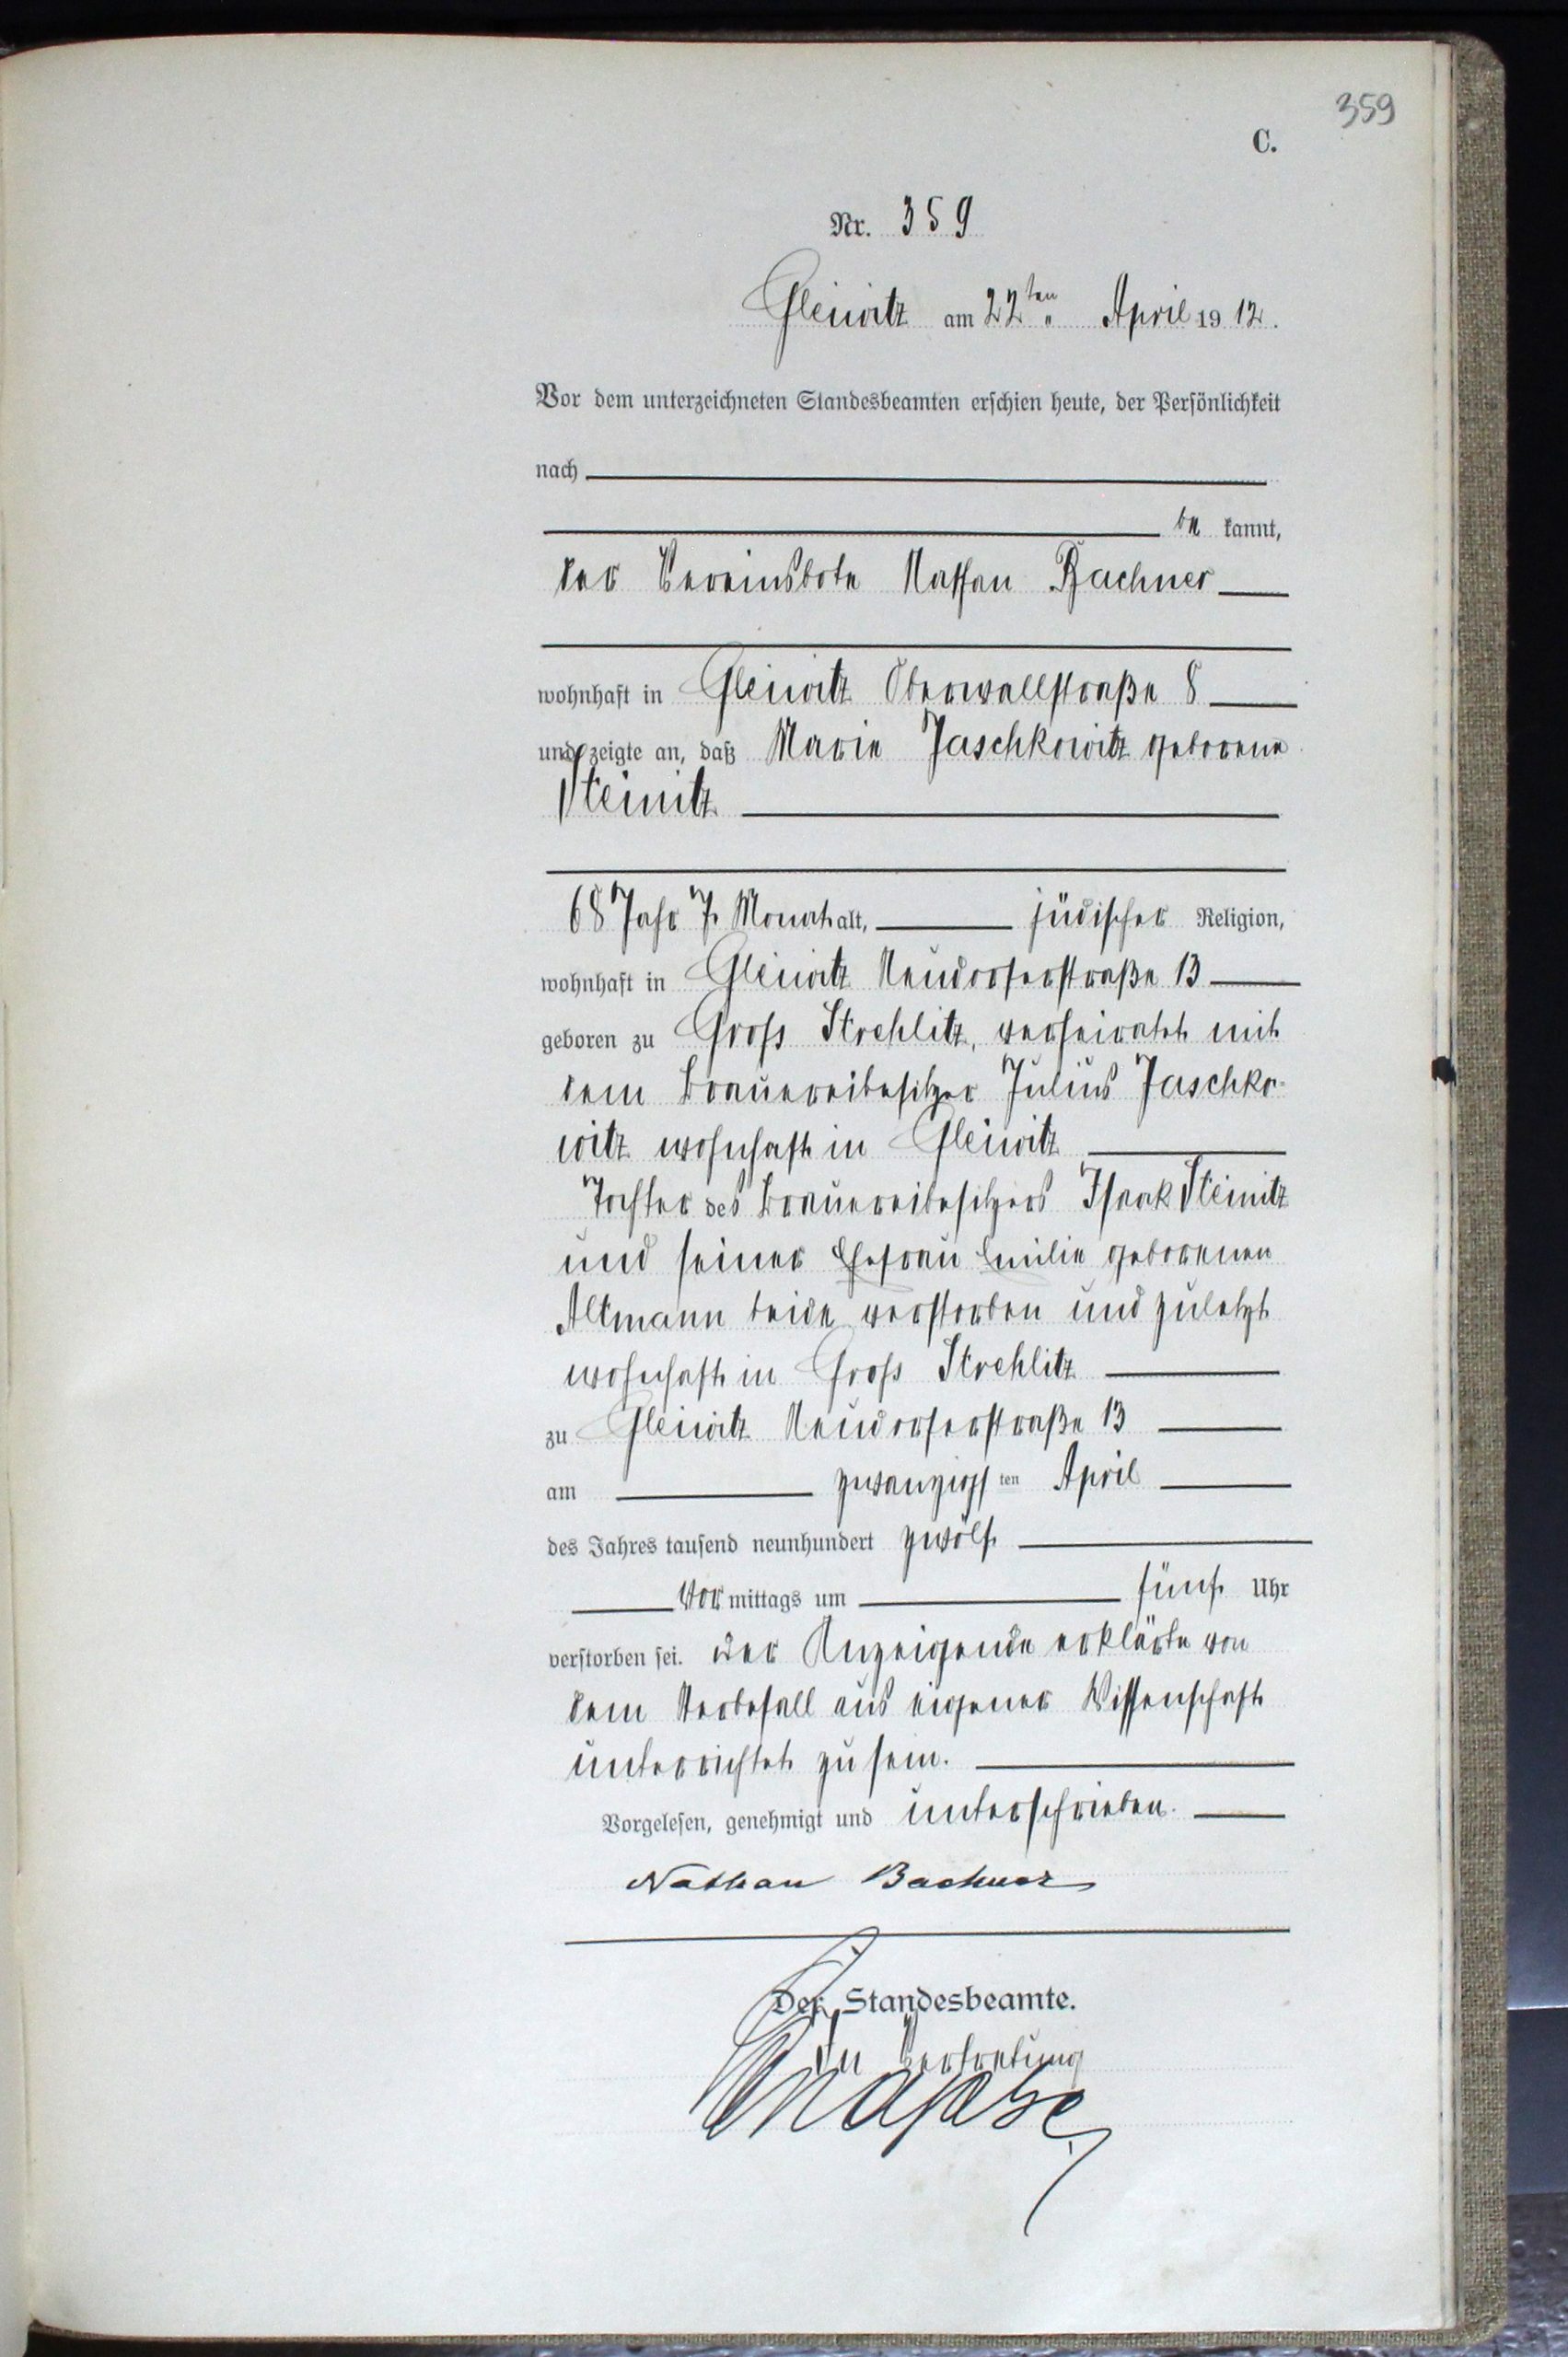 359
C.
Nr. 359
Gleiwitz am 22ten April 1912.
Vor dem unterzeichneten Standesbeamten erschien heute, der Persönlichkeit
nach
be kannt,
der Vereinsbote Nathan Bachner
wohnhaft in Gleiwitz Oberwallstraße 8
und zeigte an, daß Marie Jaschkowitz geborene
Steinitz
68 Jahr 7 Monat alt, jüdischer Religion,
wohnhaft in Gleiwitz Neudorferstraße 13
geboren zu Gross Strehlitz, verheiratet mit
dem Brauereibesitzer Julius Jaschko-
witz wohnhaft in Gleiwitz
Tochter des Brauereibesitzers Isaak Steinitz
und seiner Ehefrau Emilie geborenen
Altmann beide verstorben und zuletzt
wohnhaft in Gross Strehlitz
zu Gleiwitz Neudorferstraße 13
am zwanzigsten April
des Jahres tausend neunhundert zwölf
Vor mittags um fünf Uhr
verstorben sei. Der Anzeigende erklärte von
dem Sterbefall aus eigener Wissenschaft
unterrichtet zu sein.
Vorgelesen, genehmigt und unterschrieben.
Nathan Bachner
Der Standesbeamte.
In Vertretung